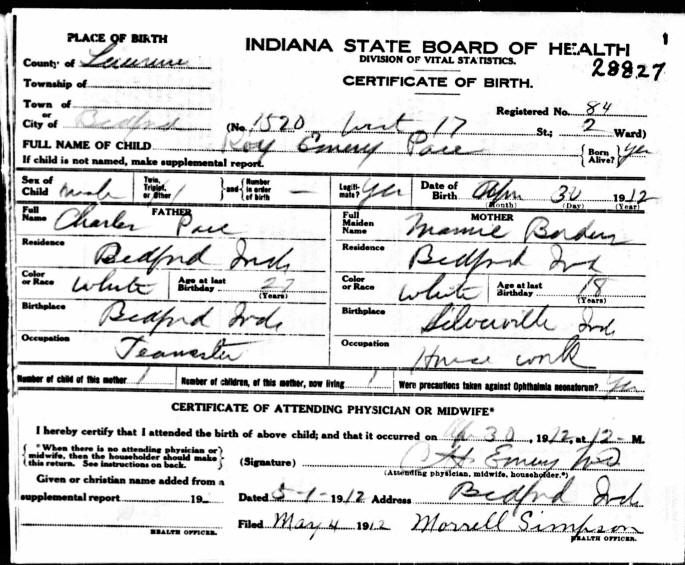 PLACE OF BIRTH
INDIANA STATE BOARD OF HEALTH
DIVISION OF VITAL STATISTICS.
28827
County of Lawrence
CERTIFICATE OF BIRTH.
Township of
Town of
or
Registered No. 84
City of Bedford (No. 1520 West 17 St.; 2 Ward)
FULL NAME OF CHILD Roy Emery Pace { Born Alive? } Yes
If child is not named, make supplemental report.
Sex of Child male Twin, Triplet, or Other? } and { Number in order of birth — Legitimate? Yes Date of Birth Apr 30 1912
(Month) (Day) (Year)
FATHER MOTHER
Full Name Charles Pace Full Maiden Name Mamie Borders
Residence Bedford Ind Residence Bedford Ind
Color or Race White Age at last Birthday 27 (Years) Color or Race White Age at last Birthday 18 (Years)
Birthplace Bedford Ind Birthplace Silverville Ind
Occupation Teamster Occupation House work
Number of child of this mother 1 Number of children, of this mother, now living 1 Were precautions taken against Ophthalmia neonatorum? Yes
CERTIFICATE OF ATTENDING PHYSICIAN OR MIDWIFE*
I hereby certify that I attended the birth of above child; and that it occurred on Ap 30, 1912, at 12 - M.
{ *When there is no attending physician or midwife, then the householder should make this return. See instructions on back. } (Signature) H. Emery M.D
(Attending physician, midwife, householder.*)
Given or christian name added from a
supplemental report 19 Dated 5-1-1912 Address Bedford Ind
Filed May 4 1912 Morrell Simpson
HEALTH OFFICER. HEALTH OFFICER.